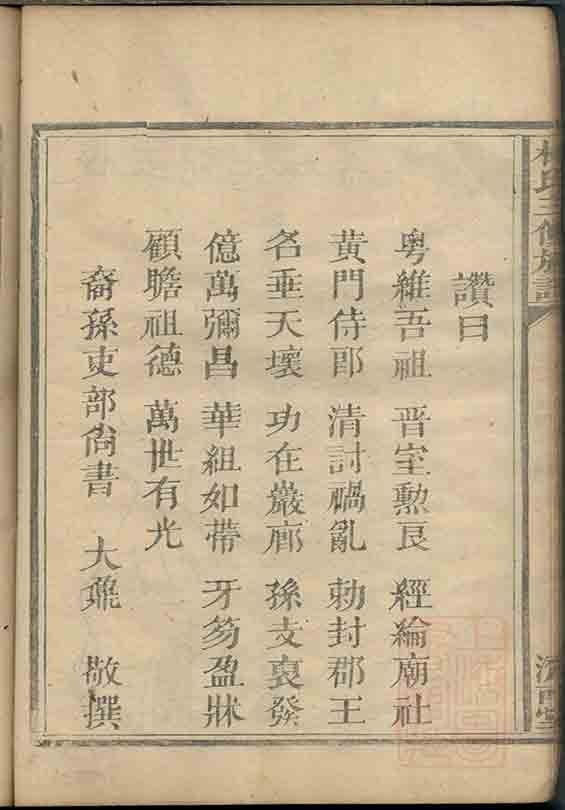 讚曰
粤維吾祖 晋室勲良 經綸廟社
黄門侍郎 清討禍亂 勅封郡王
名垂天壤 功在巖廊 孫支裒發
億萬彌昌 華組如帶 牙笏盈牀
顧瞻祖德 萬世有光
裔孫吏部尚書 大鼐 敬撰
林氏三修族譜